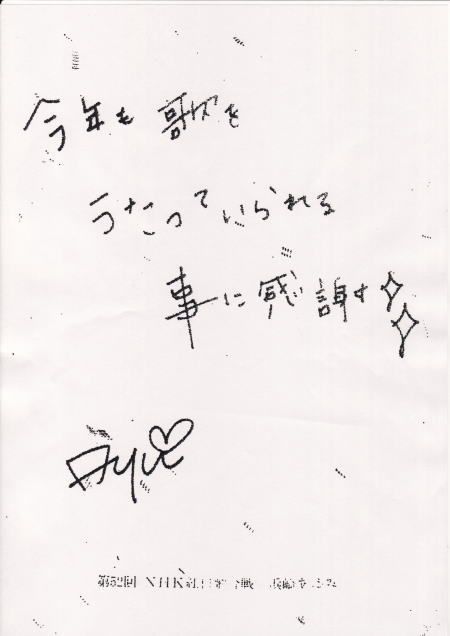 今年も 歌を
うたっていられる
事に感謝す
Ayu
第52回 NHK紅白歌合戦